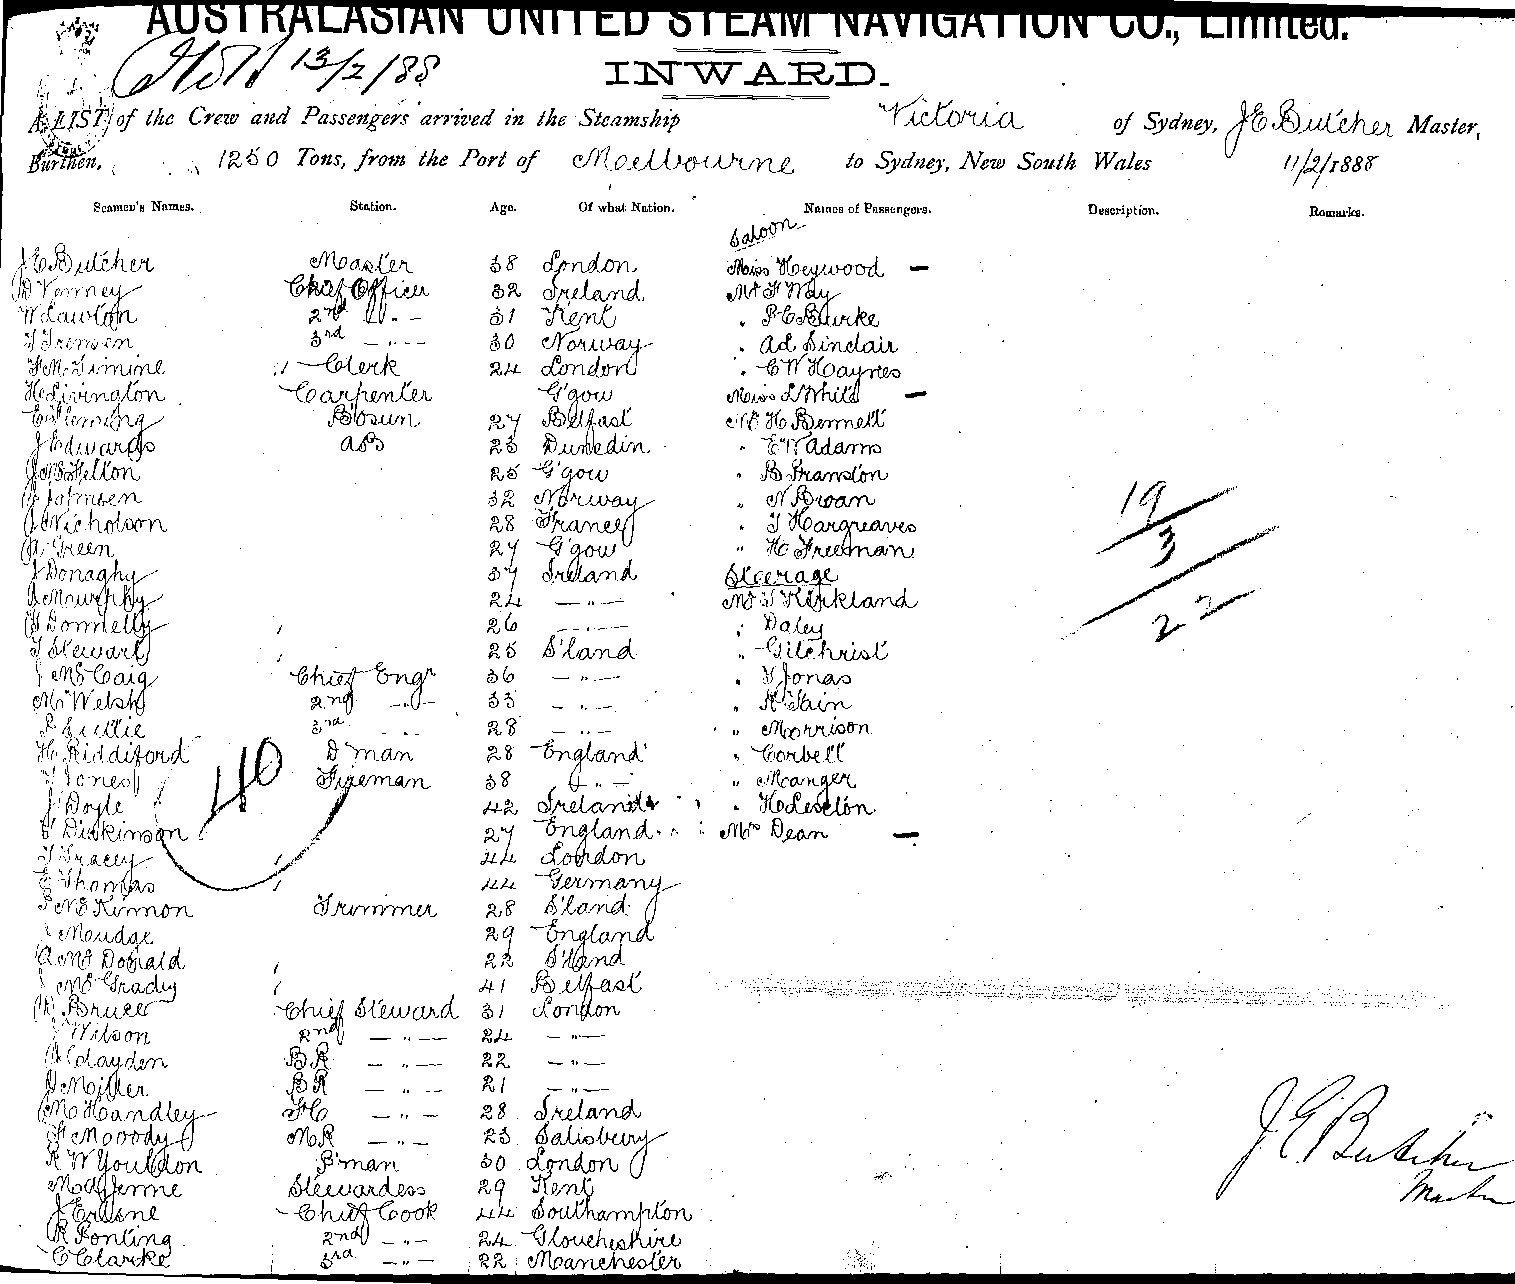 AUSTRALASIAN UNITED STEAM NAVIGATION CO., Limited.
13/2/88
INWARD.
A LIST of the Crew and Passengers arrived in the Steamship Victoria of Sydney, J E Butcher Master,
Burthen, 1250 Tons, from the Port of Melbourne to Sydney, New South Wales 11/2/1888
Seamen's Names. Station. Age. Of what Nation. Names of Passengers. Description. Remarks.
Saloon
J E Butcher Master 38 London Miss Heywood –
D Venney Chief Officer 32 Ireland Mr F Way
W Lawton 2nd " - 31 Kent " P C Burke
T Iremen 3rd - " - 30 Norway " Ad Sinclair
F McTimine Clerk 24 London " C W Haynes
H Livington Carpenter G'gow Miss L White –
E Fleming B'osun 27 Belfast Mr H Bennett
J Edwards AB 23 Dunedin " E W Adams
Skelton 25 G'gow " B Franston
Johnsen 32 Norway " N Bwan
Nicholson 28 France " T Hargreaves 19
Green 27 G'gow " H Freeman 3
J Donaghy 37 Ireland Steerage
A Murphy 24 - " - Mr T Kirkland 22
Donnelly 26 - " - " Daley
T Stewart 25 S'land " Gilchrist
J McCaig Chief Engr 36 - " - " T Jonas
M Welsh 2nd - " - 33 - " - " Tain
3rd 28 - " - " Morrison
H Riddiford D'man 28 England " Corbell
T Jones Fireman 38 - " - " Manger
40
J Doyle 42 Ireland " H Leselon
Dickinson 27 England Mrs Dean –
T Tracey 44 London
E Thomas 44 Germany
McKinnon Trimmer 28 S'land
J Moudge 29 England
A McDonald 22 S'land
J McGrady 41 Belfast
W Bruce Chief Steward 31 London
J Wilson 2nd - " - 24 - " -
A Clayden BR - " - 22 - " -
D Miller BR - " - 21 - " -
M Handley FC - " - 28 Ireland
F Moody MR - " - 23 Salisbury
R W Youldon P'man 30 London
Stewardess 29 Kent
J Erisne Chief Cook 44 Southampton
R Ponting 2nd - " - 24 Gloucheshire
C Clarke 3rd - " - 22 Manchester
J E Butcher
Master